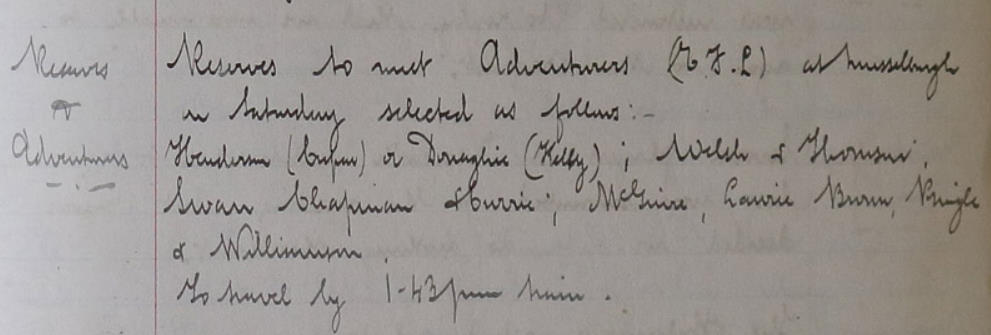 Reserves Reserves to meet Adventurers (E.F.L) at Musselburgh
v on Saturday selected as follows:-
Adventurers Henderson (Cupar) or Donaghie (Kelty); Welsh & Thomson,
Swan Chapman & Currie; McGuire, Lawrie Burn, Pringle
& Williamson.
To travel by 1-43pm train.